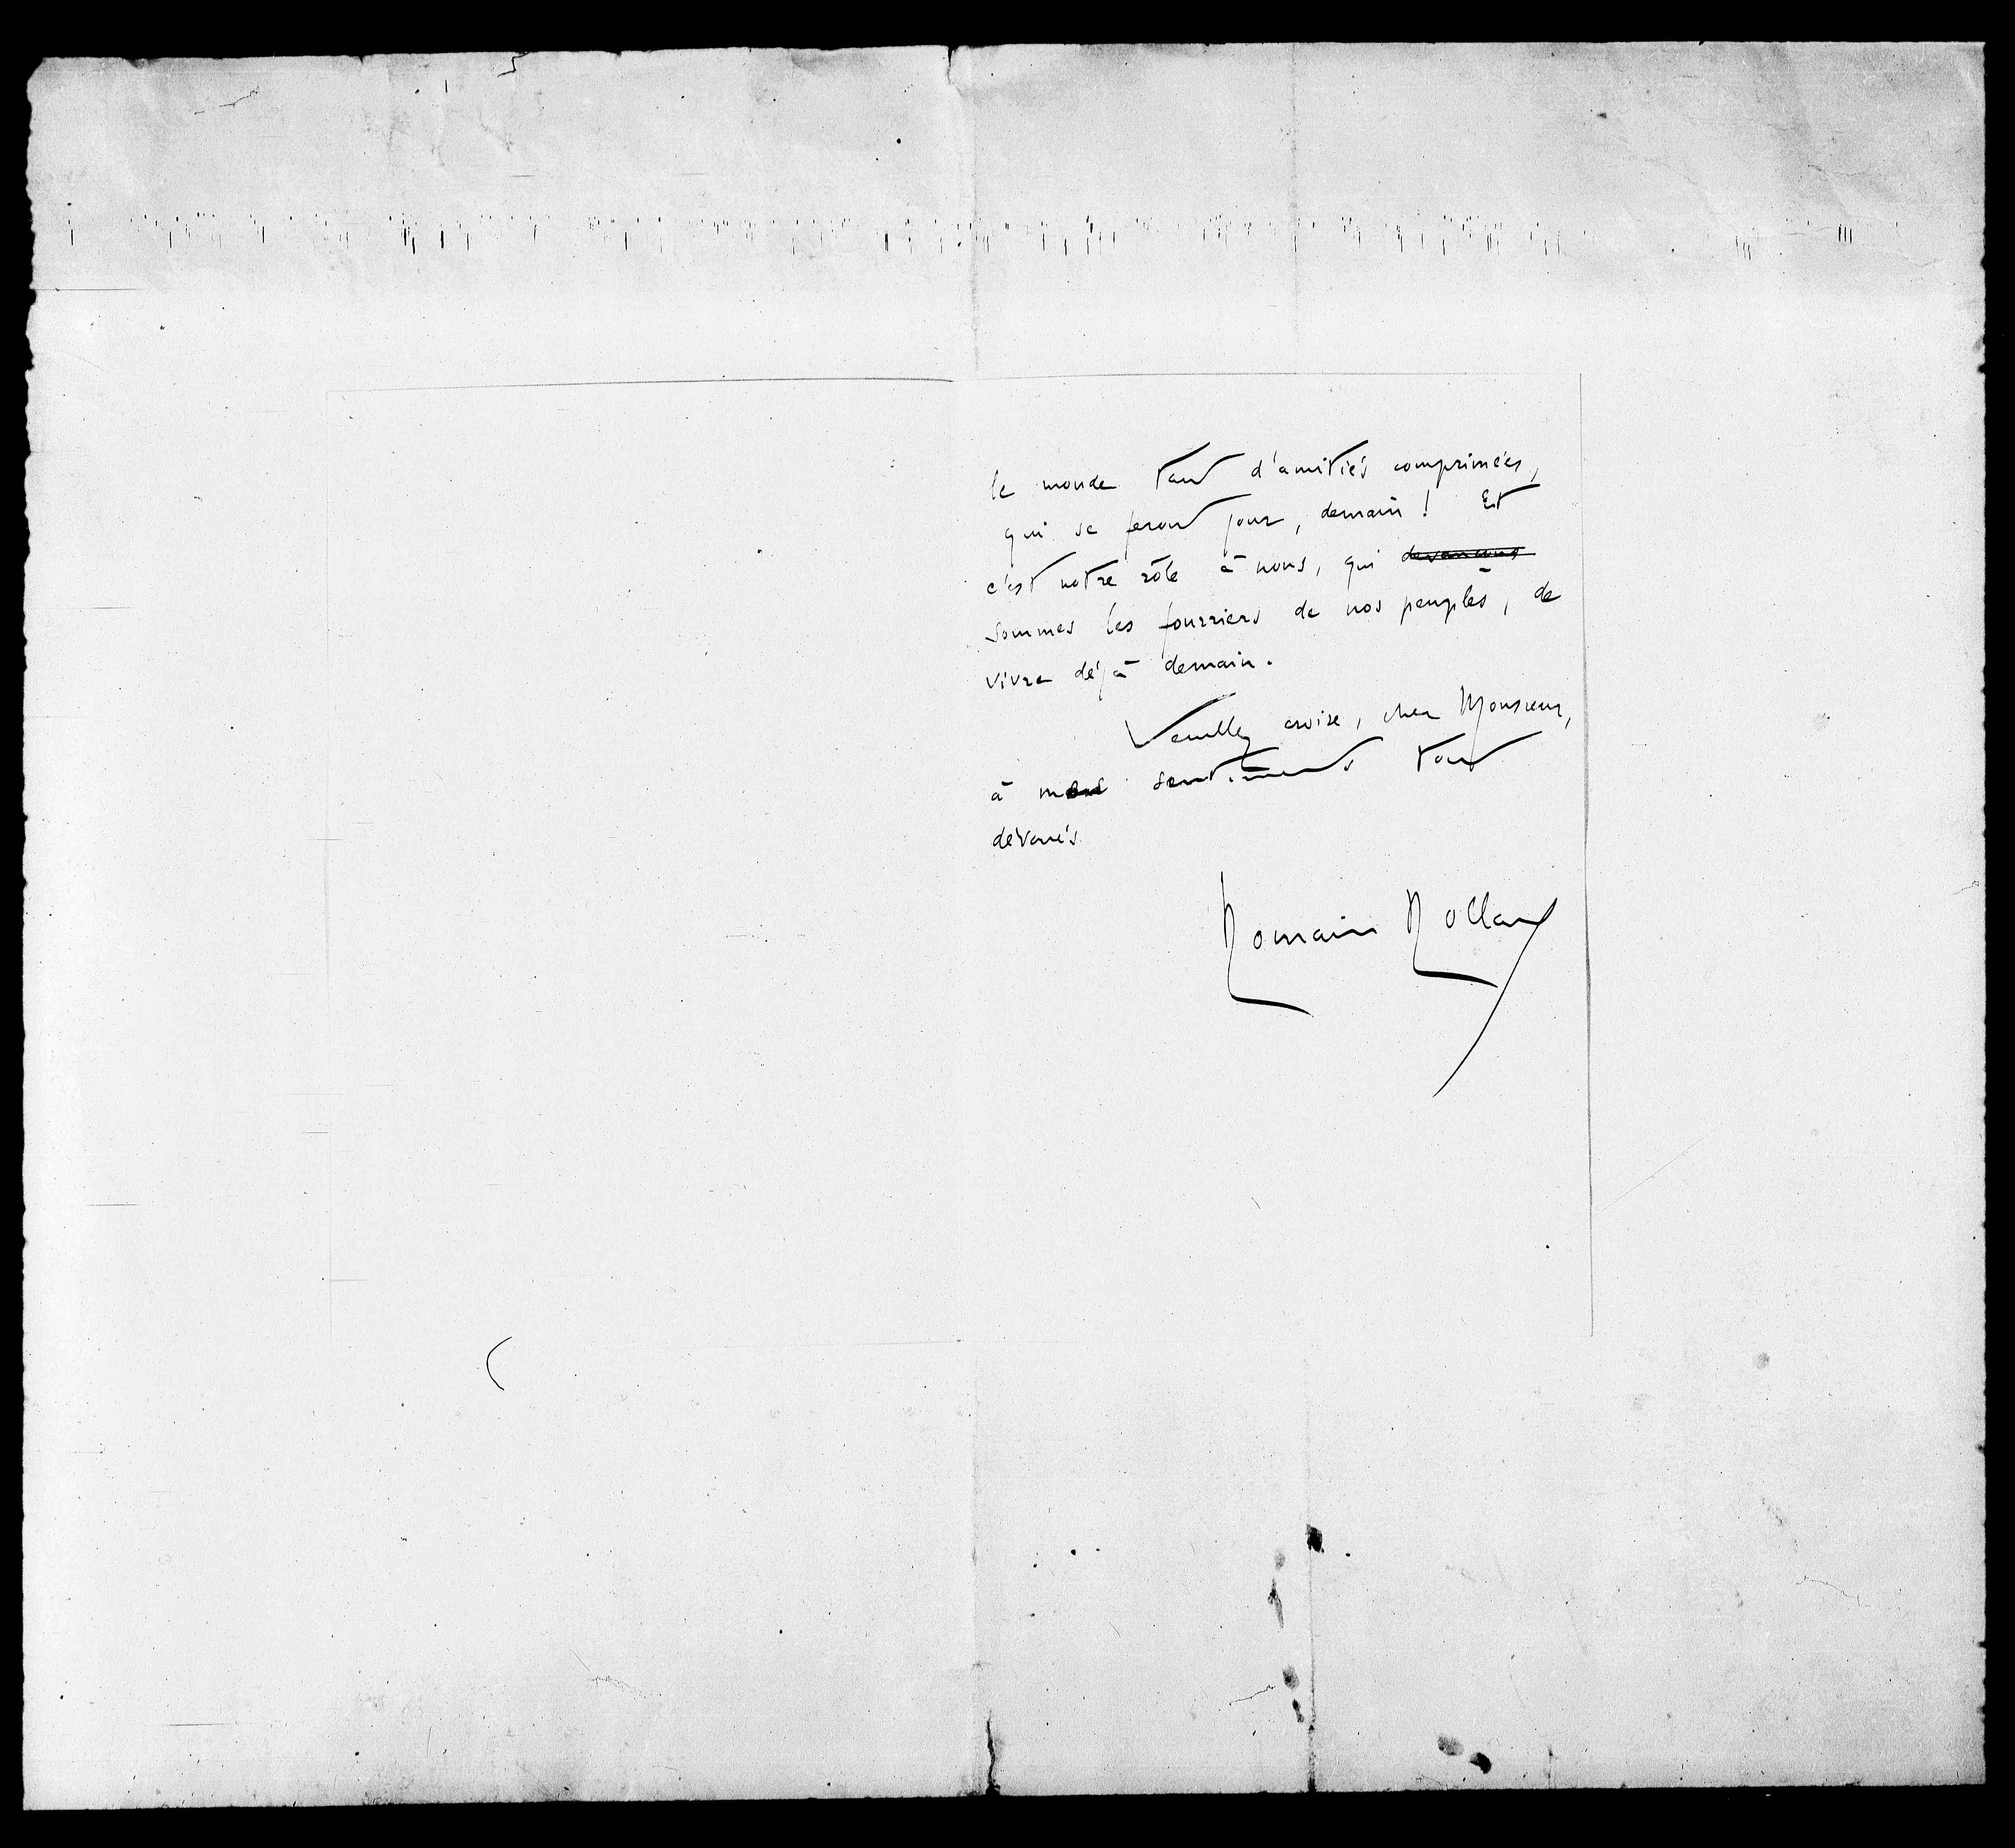 le monde tant d'amitiés comprimées,
qui se feront jour, demain ! Et
c'est notre rôle à nous, qui devançons
sommes les fourriers de nos peuples, de
vivre déjà demain.
Veuillez croire, cher Monsieur,
à mes sentiments tout
dévoués
Romain Rolland